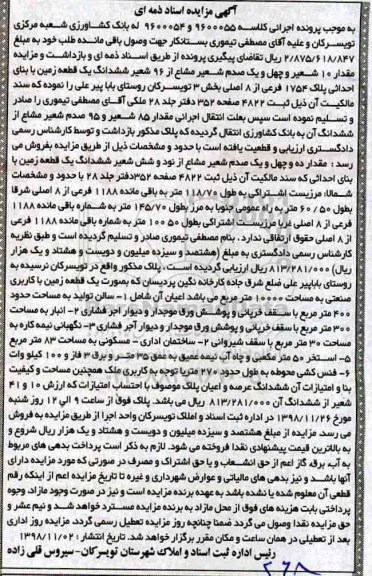 آگهی مزایده اسناد ذمه ای
به موجب پرونده اجرائی کلاسه ۹۶۰۰۰۵۵ و ۹۶۰۰۰۵۴ له بانک کشاورزی شعبه مرکزی
تویسرکان و علیه آقای مصطفی تیموری بستانکار جهت وصول باقی مانده طلب خود به مبلغ
۲/۸۷۵/۶۱۸/۸۴۷ ریال تقاضای پیگیری پرونده از طریق اسناد ذمه ای و بازداشت و مزایده
مقدار ۱۰ شعیر و چهل و یک صدم شعیر مشاع از ۹۶ شعیر ششدانگ یک قطعه زمین با بنای
احداثی پلاک ۱۷۵۴ فرعی از ۸ اصلی بخش ۳ تویسرکان روستای بابا پیر علی را نموده که سند
مالکیت آن ذیل ثبت ۴۸۲۲ صفحه ۳۵۲ دفتر جلد ۲۸ ملکی آقای مصطفی تیموری را صادر
و تسلیم نموده است سپس بعلت انتقال اجرائی مقدار ۸۵ شعیر و ۹۵ صدم شعیر مشاع از
ششدانگ آن به بانک کشاورزی انتقال گردیده که پلاک مذکور بازداشت و توسط کارشناس رسمی
دادگستری ارزیابی و قطعیت یافته است با حدود و مشخصات ذیل از طریق مزایده بفروش می
رسد : مقدار ده و چهل و یک صدم شعیر مشاع از نود و شش شعیر ششدانگ یک قطعه زمین با
بنای احداثی که سند مالکیت آن ذیل ثبت ۴۸۲۲ صفحه ۳۵۲دفتر جلد ۲۸ با حدود و مشخصات
شمالا: مرزیست اشتراکی به طول ۱۱۸/۷۰ متر به باقی مانده ۱۱۸۸ فرعی از ۸ اصلی شرقا
بطول ۵۰ / ۶۰ متر به راه عمومی جنوبا به مرز بطول ۱۴۵/۷۰ متر به شماره باقی مانده ۱۱۸۸
فرعی از ۸ اصلی غربا مرزیست اشتراکی بطول ۵۰ ۱۰۰ متر به شماره باقی مانده ۱۱۸۸ فرعی
از ۸ اصلی حقوق ارتفاقی ندارد . بنام مصطفی تیموری صادر و تسلیم گردیده است و طبق نظریه
کارشناس رسمی دادگستری به مبلغ (هشتصد و سیزده میلیون و دویست و هشتاد و یک هزار
ریال) ۸۱۳/۲۸۱/۰۰۰ ریال ارزیابی گردیده است . پلاک مذکور واقع در تویسرکان نرسیده به
روستای باباپیر علی ضلع شرق جاده کارخانه نگین پردیسان که بصورت یک قطعه زمین با کاربری
صنعتی به مساحت ۱۰۰۰۰ متر مربع می باشد اعیان آن شامل ۱- سالن تولید به مساحت حدود
۴۰۰ متر مربع با سقف خرپائی و پوشش ورق موجدار و دیوار آجر فشاری ۲- انبار به مساحت
۳۰۰ متر مربع با سقف خرپائی و پوشش ورق موجدار و دیوار آجر فشاری ۳- نگهبانی نیمه کاره به
مساحت ۳۰ متر مربع با سقف شیروانی ۴- ساختمان اداری - مسکونی به مساحت ۸۳ متر مربع
۵- استخر ۵۰ متر مکعبی و چاه آب نیمه عمیق به عمق ۳۵ متر و برق ۳ فاز و ۱۰۰ کیلو وات
۶- فنس کشی محوطه به طول حدود ۲۷۰ متر با توجه به کاربری ملک همچنین مساحت و کیفیت
بنا و امتیازات آن ششدانگ عرصه و اعیان پلاک موصوف با احتساب امتیازات که ارزش ۱۰ و ۴۱
شعیر از ششدانگ آن ۸۱۳/۲۸۱/۰۰۰ ریال می باشد. پلاک فوق از ساعت ۹ الی ۱۲ روز شنبه
مورخ ۱۳۹۸/۱۱/۲۶ در اداره ثبت اسناد و املاک تویسرکان واحد اجرا از طریق مزایده به فروش
می رسد. مزایده از مبلغ هشتصد و سیزده میلیون و دویست و هشتاد و یک هزار ریال شروع و
به بالاترین قیمت پیشنهادی نقدا فروخته می شود. لازم به ذکر است پرداخت بدهی های مربوط
به آب، برق، گاز اعم از حق انشعاب و یا حق اشتراک و مصرف در صورتی که مورد مزایده دارای
آنها باشد و نیز بدهی های مالیاتی و عوارض شهرداری و غیره تا تاریخ مزایده اعم از اینکه رقم
قطعی آن معلوم شده یا نشده باشد به عهده برنده مزایده است و نیز در صورت وجود مازاد، وجوه
پرداختی بابت هزینه های فوق از محل مازاد به برنده مزایده مسترد خواهد شد و نیم عشر و
حق مزایده نقدا وصول می گردد ضمنا چنانچه روز مزایده تعطیل رسمی گردد، مزایده روز اداری
بعد از تعطیلی در همان ساعت و مکان مقرر برگزار خواهد شد. تاریخ انتشار : ۱۳۹۸/۱۱/۰۲
رئیس اداره ثبت اسناد و املاک شهرستان تویسرکان-سیروس قلی زاده